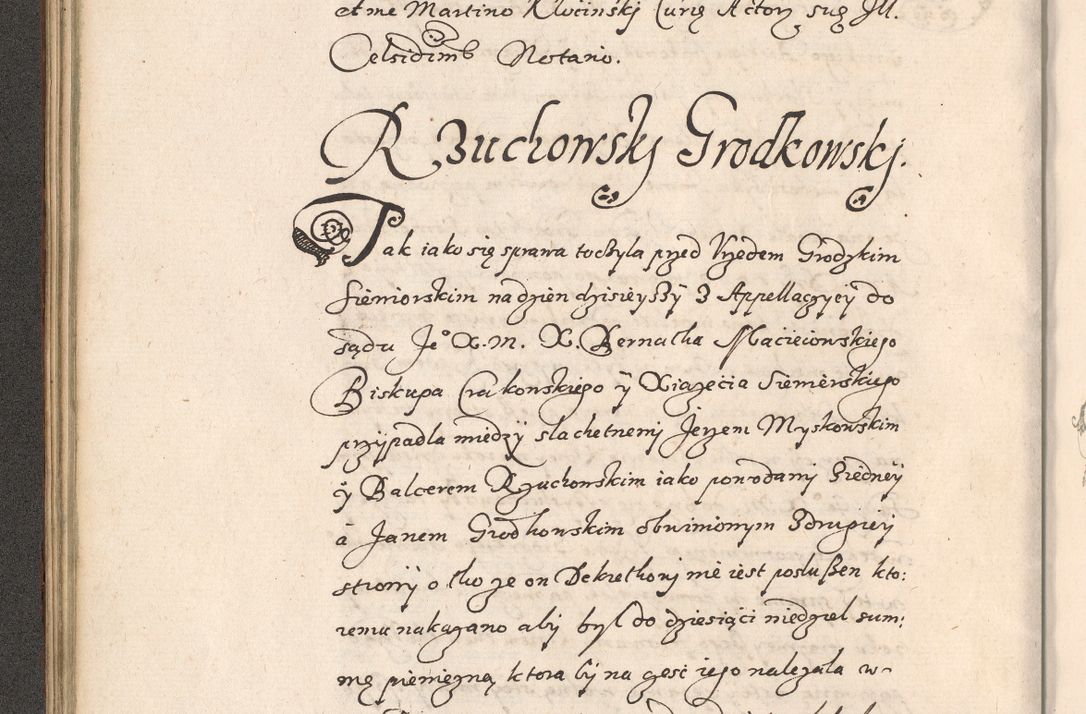 et me Martino Kłociński Curię Actor. suę Ill.
Celsidinis Notario.
Rzuchowskj Grodkowskj.
Tak iako się sprawa toczyła przed Vrzędem Grodzkim
Siewiorskim na dzien dzisieyszÿ z Appellaczyeÿ do
sądu Je° X. m. X. Bernatha Macieiowskiego
Biskupa Crakowskiego ÿ Xiążęcia Siewierskiego
przypadla miedzÿ slachetnemj Jerzem Myskowskim
ÿ Balcerem Rzuchowskim iako powodamj ziedneÿ
à Janem Grodkowskim obwinionym zdrugieÿ
stronÿ o tho ze on Dekrethowj nie iest poslußen kto:
remu nakazano abÿ był do dziesiąci niedziel sum:
mę pieniężną ktora bÿ na częsc iego należala w-